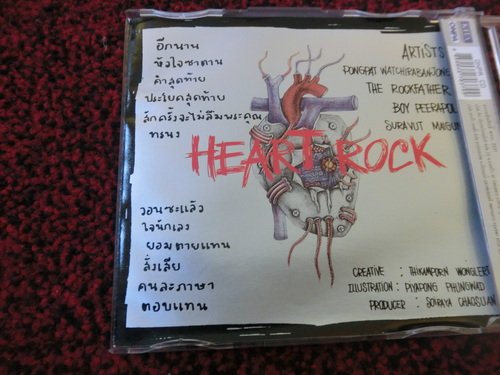 อีกนาน
หัวใจซาตาน
คำสุดท้าย
ประโยคสุดท้าย
สักครั้งจะไม่ลืมพระคุณ
ทรนง
ARTISTS
PONGPAT WATCHIRABANJONG
THE ROCKFATHER
BOY PEERAPOL
SURAVUT
HEART ROCK
วอนซะแล้ว
ใจนักเลง
ยอมตายแทน
สั่งเสีย
คนละภาษา
ตอบแทน
CREATIVE : THIKAMPORN WONGLERT
ILLUSTRATION : PIYAPONG PHUNGWAD
PRODUCER : SORAYA CHAOSUAN